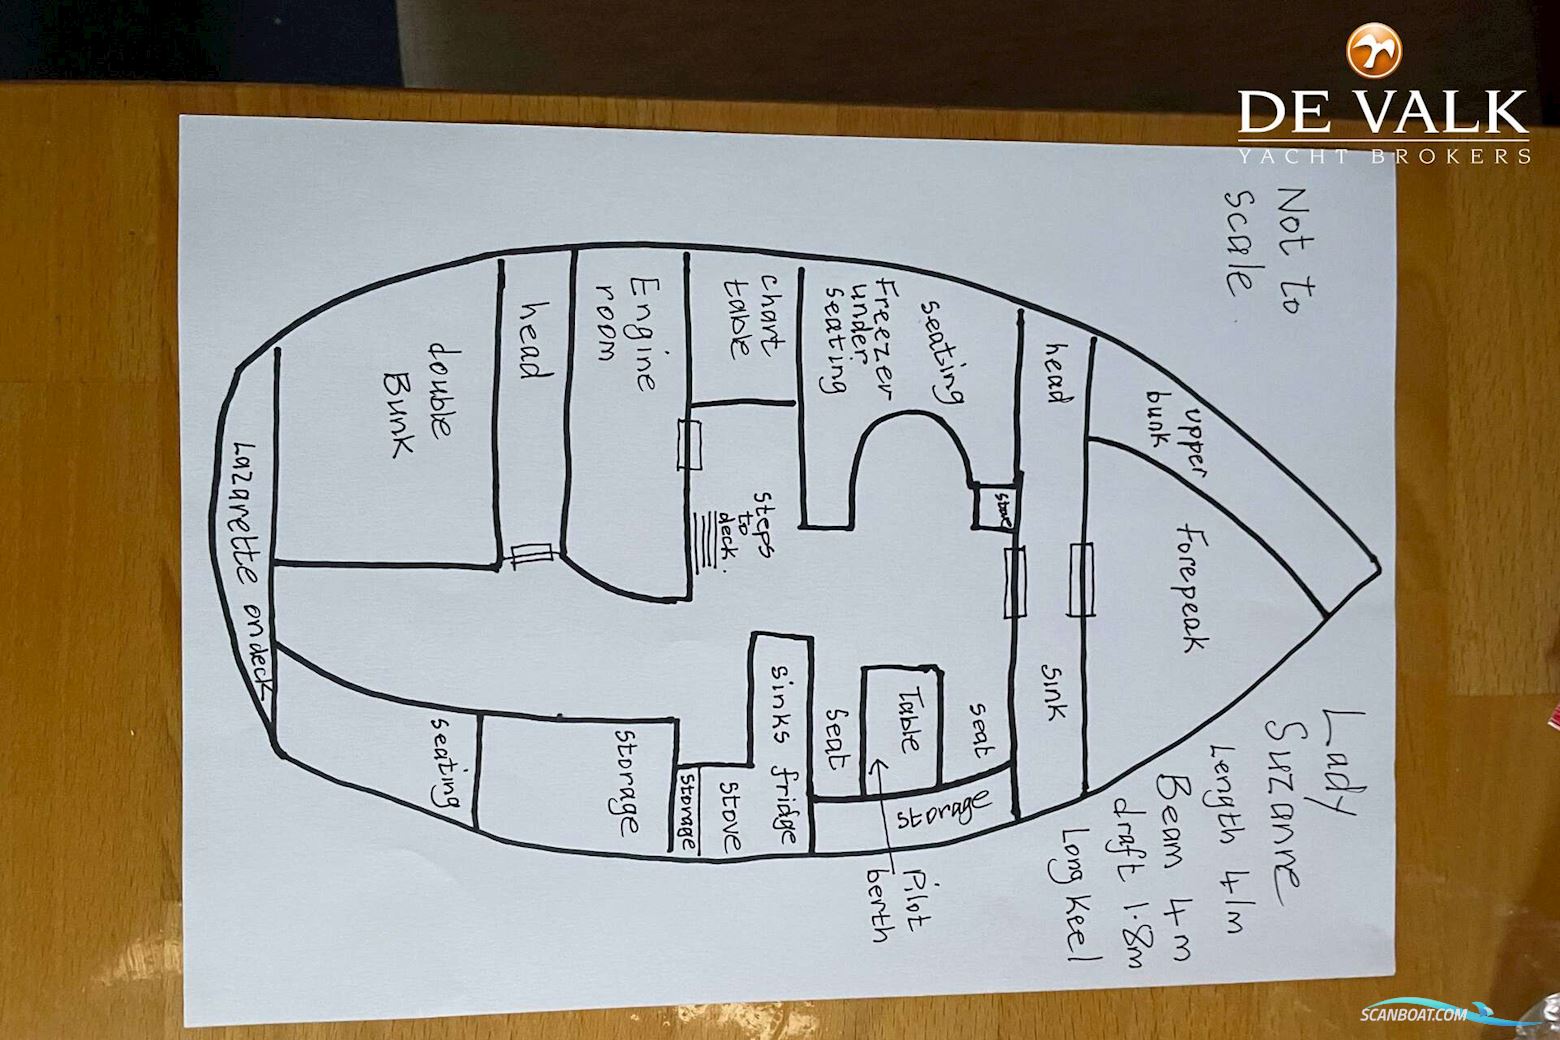 DE VALK
YACHT BROKERS
Not to
scale.
Lady
Suzanne
Length 41m
Beam 4m
draft 1.8m
Long Keel
upper
bunk
Forepeak
head
sink
seating
Freezer
under
seating
stove
seat
Table
seat
storage
Pilot
berth
chart
table
steps
to
deck.
sinks fridge
stove
storage
Engine
room
storage
head
double
Bunk
seating
Lazarette on deck
SCANBOAT.COM